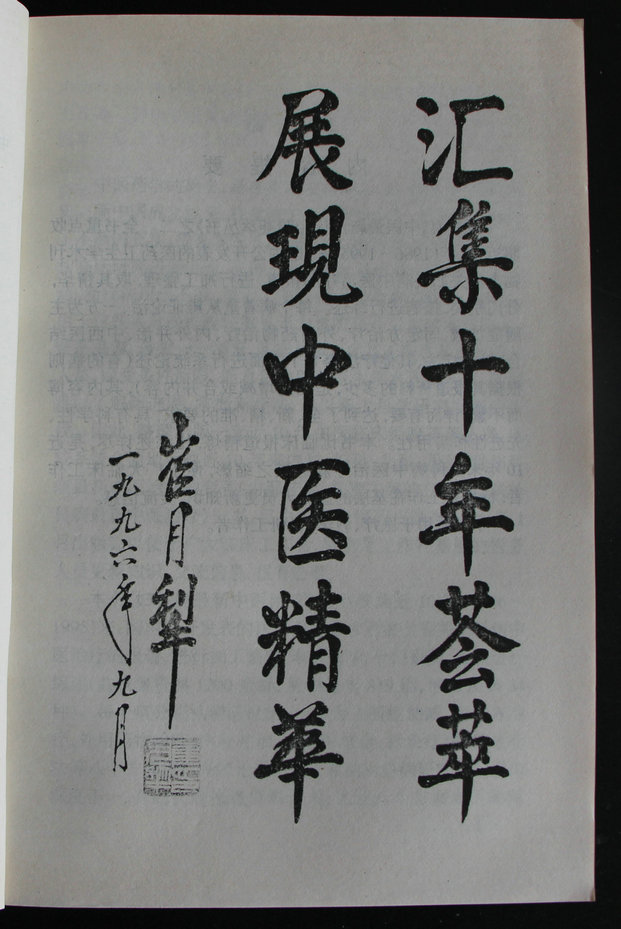 汇集十年荟萃
展現中医精華
崔月犁
一九九六年九月